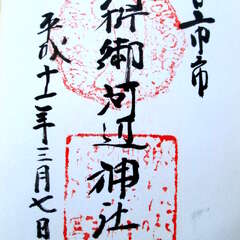 日市市
拝 御河辺神社
平成十二年三月七日